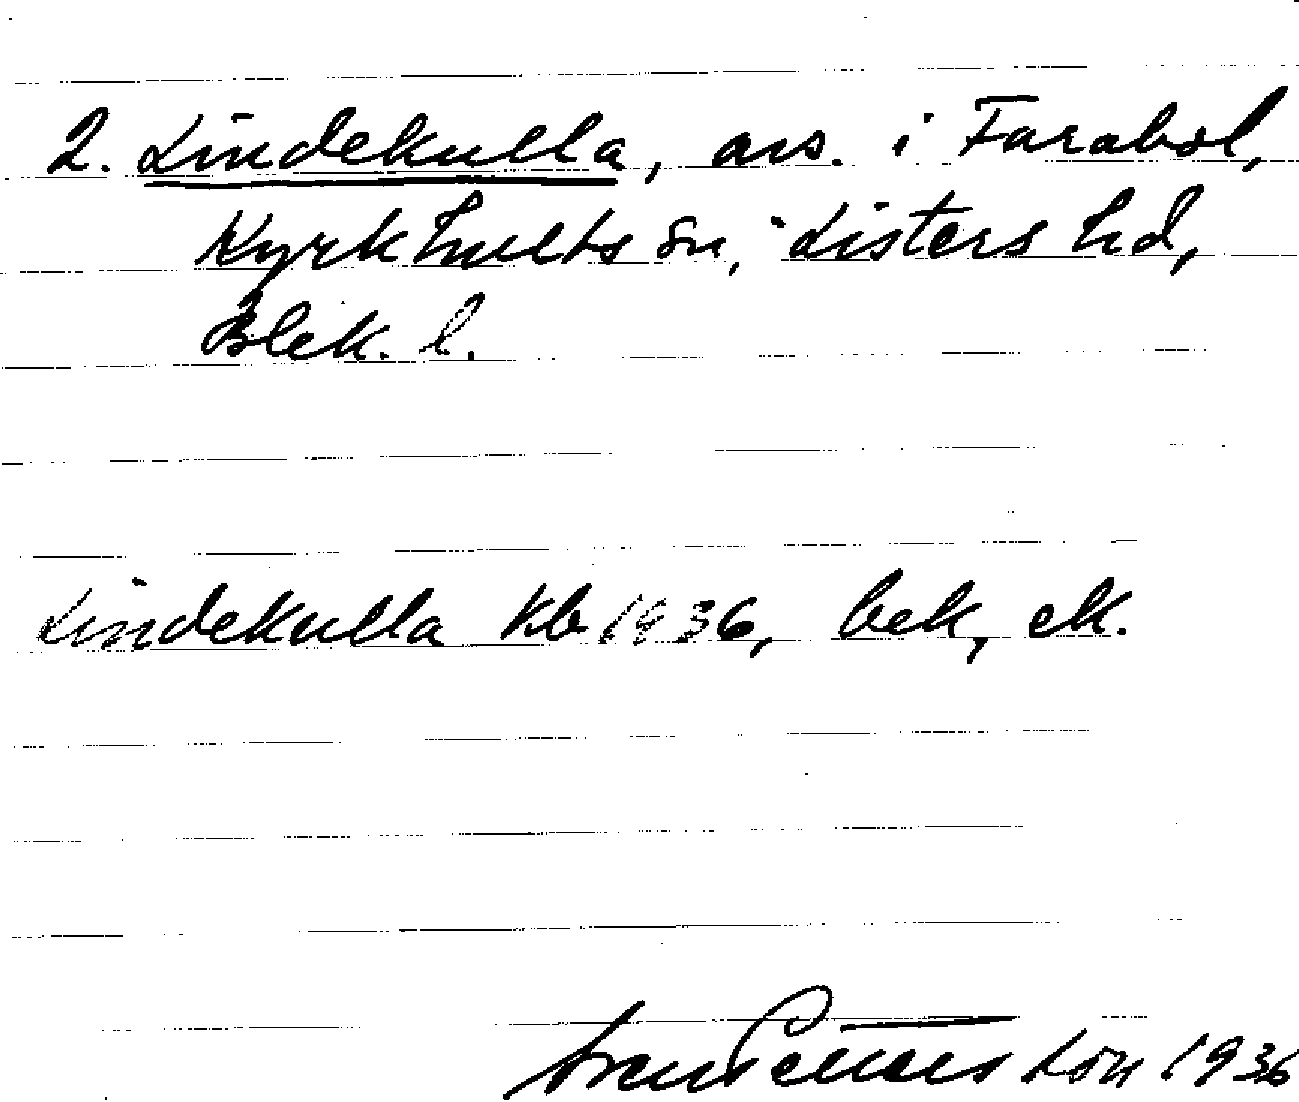 2. Lindekulla, avs. i Farabol,
Kyrkhults sn, Listers hd,
Blek. l.
Lindekulla Kb 1936, bek, ek.
Sven Petterson 1936